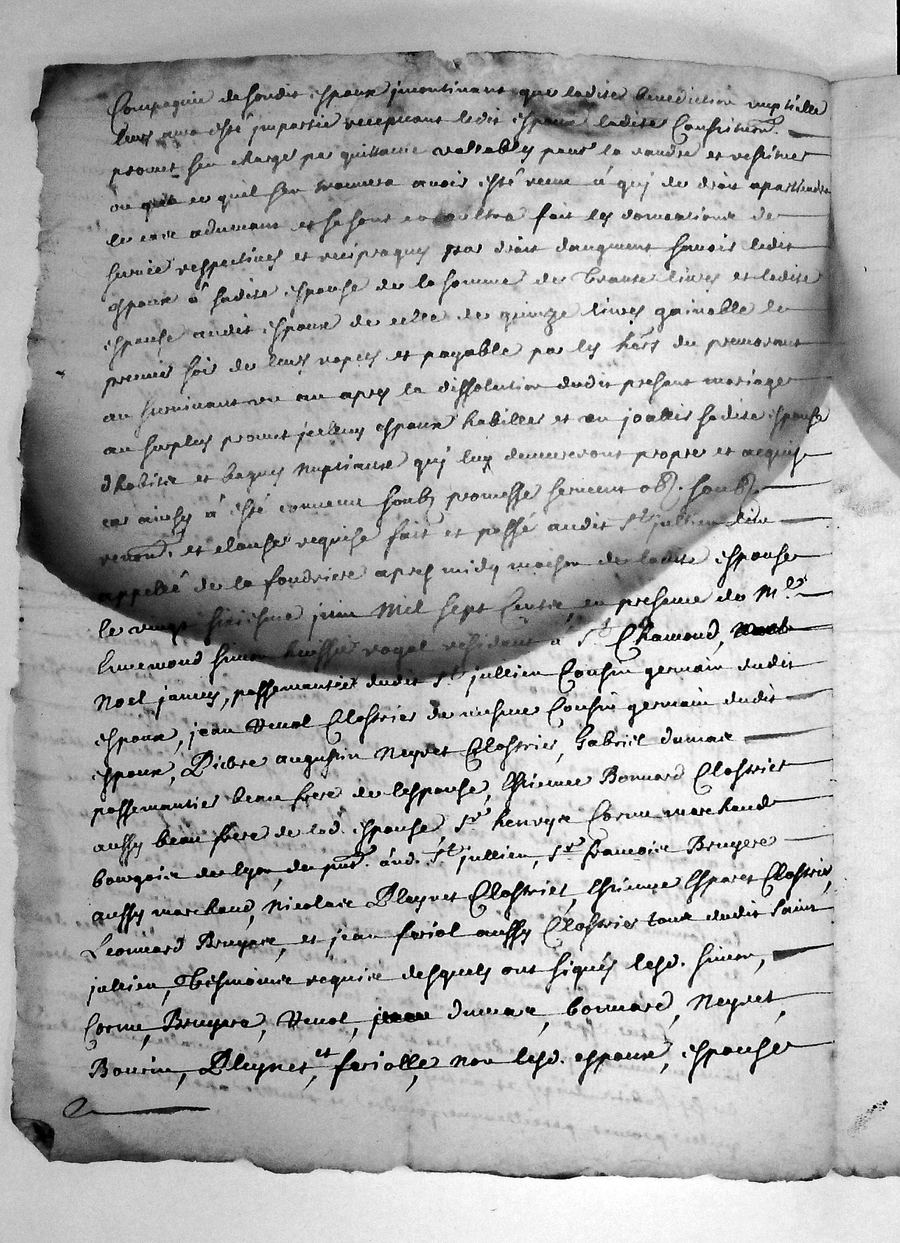 Compagnie desondit espoux incontinant que ladite benediction nuptielle
leurs aura esté impartie recepvant ledit espoux ladite Constitution
promet sen charger par quittance vallables pour la randre et restituer
ou et en quil sen trouvera avoir esté receu à qui de droit apartiendra
le cas advenant et se sont en oultre fait les donnations de
survie respectives et reciproques par droit daugment savoir ledit
espoux à sadite espouse de la somme de Trante livres et ladite
espouse audit espoux de celle de quinze livres gainable le
premier jour de leurs nopces et payable par les hers du premourant
au survivant un an apres la dissolution dudit presant mariage
au surplus promet icelluy espoux habiller et en joaller sadite espouse
dhabits et bagues nuptiaux qui luy demeureront propre et acquis
car ainsy à esté convenu soubz promesse serment obl. soubz.
renon. et clause requise fait et passé audit St jullien lieu
appellé de la foudriere apres midy maison de ladite espouse
le vingt sixiesme juin Mil sept Cents en presance de Mr
Ennemond simon huissier royal residant à St Chamond,
Noel james, passemantier dudit St jullien Cousin germain dudit
espoux, jean Venol Clostrier de mesme Cousin germain dudit
espoux, Pierre augustin Neyret Clostrier, Gabriel dumas
passemantier beau frere de lespouse, Estienne Bonnard Clostrier
aussy beau frere de lad. espouse Sr henrys Cornu marchand
bourgois de Lyon, de pnt. aud. St jullien, Sr francois Bruyere
aussy marchand, Nicolas Pleynet Clostrier, Estienne Esparet Clostrier,
Leonnard Bruyere, et jean feriol aussy Clostrier tous dudit saint
jullien, Tesmoins requis desquels ont signés lesd. simon,
Cornu, Bruyere, Venol, dumas, bonnard, Neyret,
Bourin, Pleynet, et feriolle, non lesd. espoux, espouse